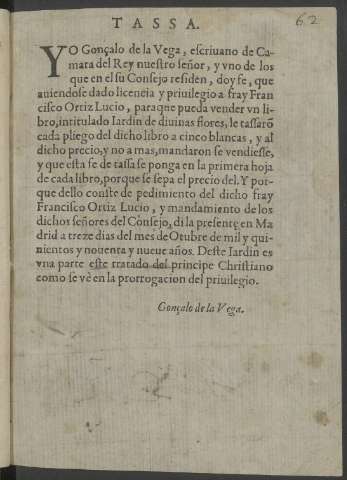 62
TASSA.
YO Gonçalo de la Vega, escriuano de Ca-
mara del Rey nuestro señor, y vno de los
que en el su Consejo residen, doy fe, que
auiendose dado licencia y priuilegio a fray Fran
cisco Ortiz Lucio, para que pueda vender vn li-
bro, intitulado Iardin de diuinas flores, le tassarõ
cada pliego del dicho libro a cinco blancas, y al
dicho precio, y no a mas, mandaron se vendiesse,
y que esta fe de tassa se ponga en la primera hoja
de cada libro, porque se sepa el precio del. Y por-
que dello conste de pedimiento del dicho fray
Francisco Ortiz Lucio, y mandamiento de los
dichos señores del Consejo, di la presente en Ma
drid a treze dias del mes de Otubre de mil y qui-
nientos y nouenta y nueue años. Deste Iardin es
vna parte este tratado del principe Christiano
como se vè en la prorrogacion del priuilegio.
Gonçalo de la Vega.